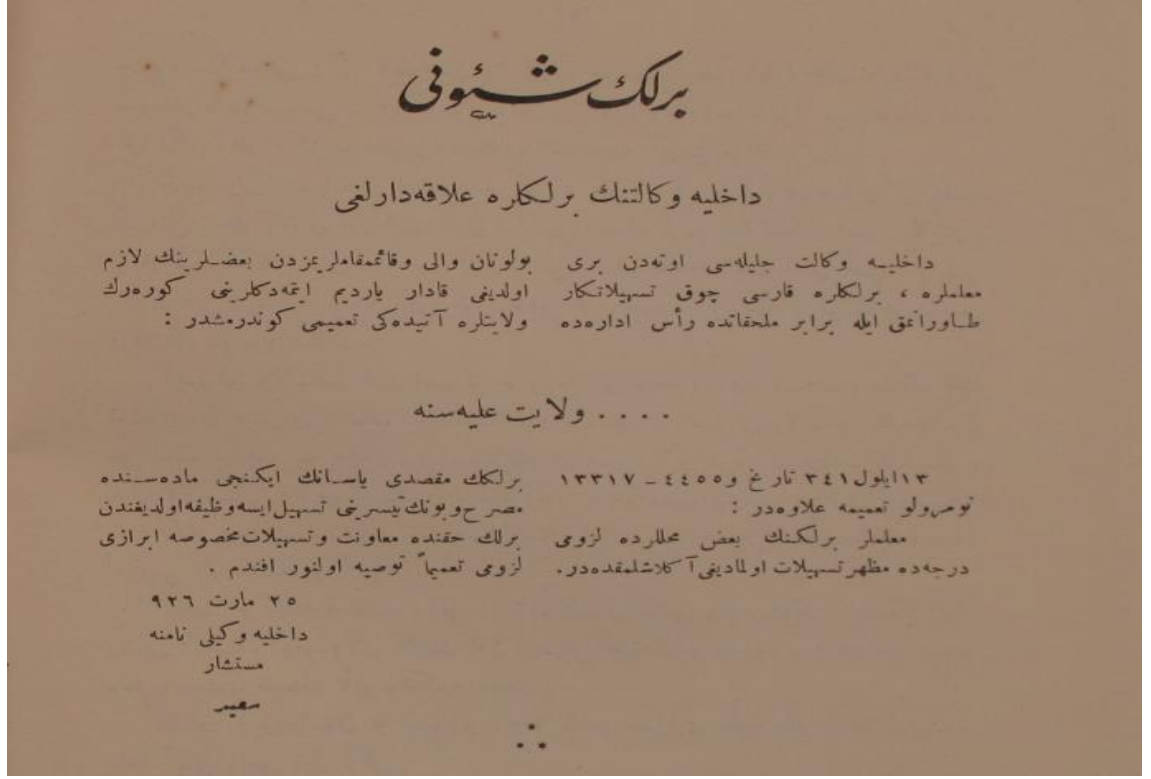 برلك شئونی
داخلیه وكالتنك برلكلره علاقه‌دارلغی
داخلیـه وكالت جلیله‌سی اوته‌دن بری
معلملره ، برلكلره قارسی چوق تسهیلاتكار
طـاورانمق ایله برابر ملحقاتده رأس اداره‌ده
بولونان والی وقائممقاملریمزدن بعضـلرینك لازم
اولدیغی قادار یاردیم ایتمه‌دكلرینی كوره‌رك
ولایتلره آتیده‌كی تعمیمی كوندرمشدر :
. . . . ولایت علیه‌سنه
١٣ ایلول ٣٤١ تاریخ و ٤٤٥٥ – ١٣٣١٧
نومرولو تعمیمه علاوه‌در :
معلملر برلكنك بعض محللرده لزومی
درجه‌ده مظهر تسهیلات اولمادیغی آكلاشلمقده‌در .
برلكك مقصدی یاسـانك ایكنجی ماده‌سـنده
مصرح و بونك تیسرینی تسهیل ایسه وظیفه اولدیغندن
برلك حقنده معاونت و تسهیلات مخصوصه ابرازی
لزومی تعمیماً توصیه اولنور افندم .
٢٥ مارت ٩٢٦
داخلیه وكیلی نامنه
مستشار
سعید